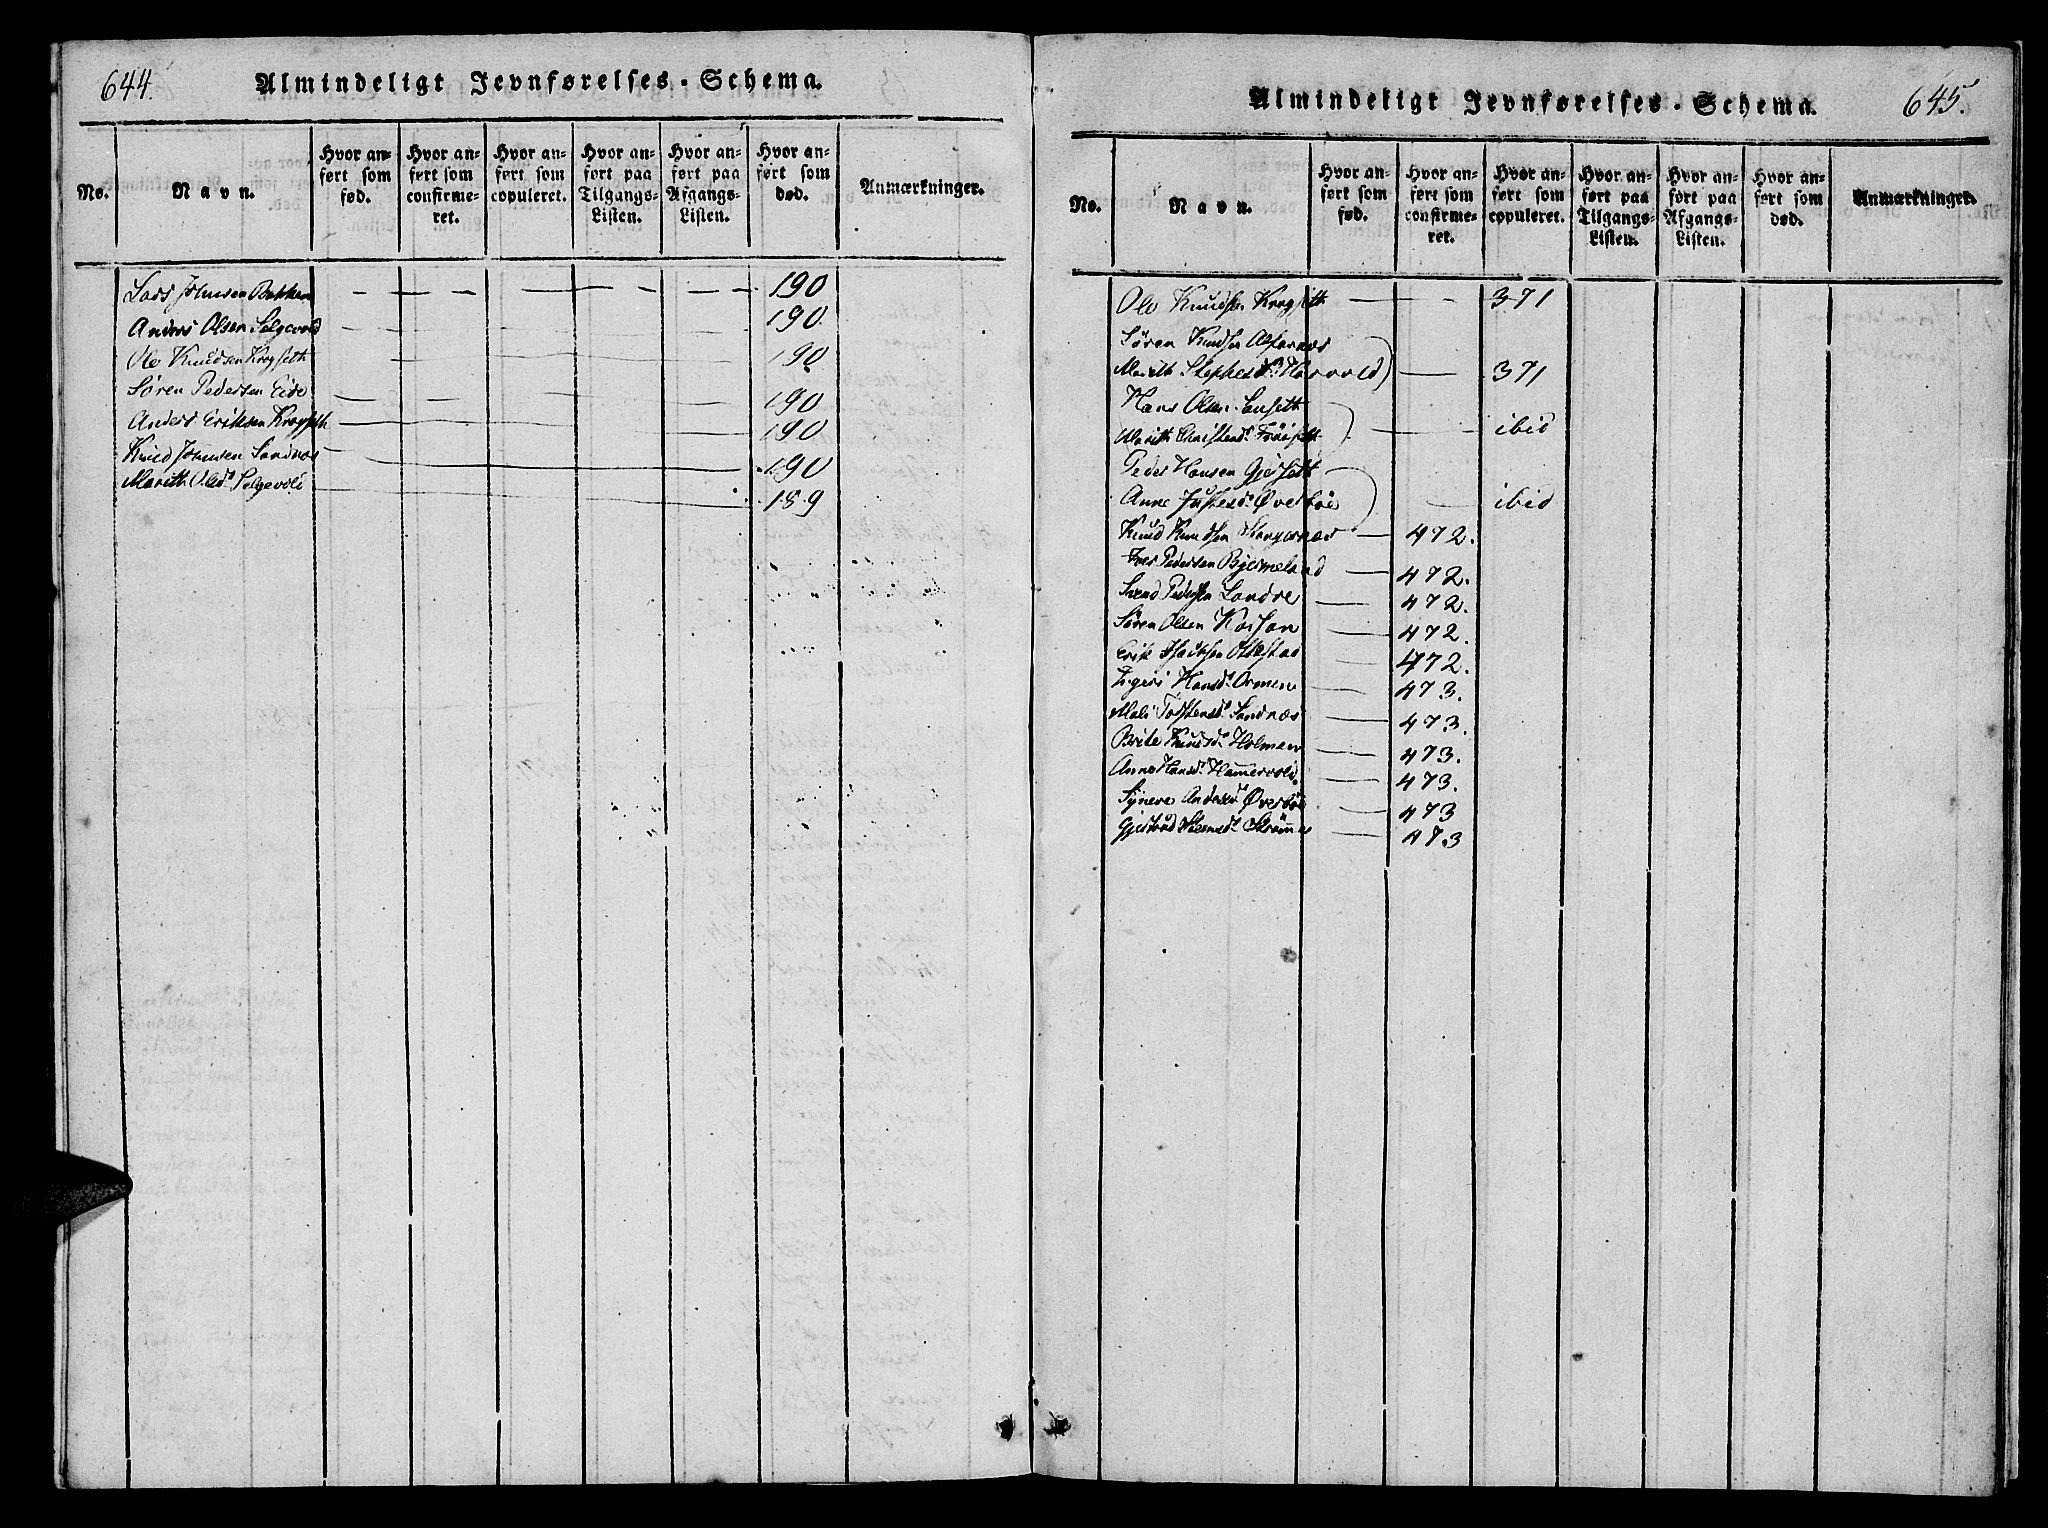 644.
Almindeligt Jevnførelses-Schema.
No.
Navn.
Hvor anført som fød.
Hvor anført som confirmeret.
Hvor anført som copuleret.
Hvor anført paa Tilgangs-Listen.
Hvor anført paa Afgangs-Listen.
Hvor anført som død.
Anmærkninger.
Lars Johnsen Bakken 190
Anders Olsen 190.
Ole Knudsen Kragseth 190
Søren Pedersen Eide 190
Anders Eriksen Kragseth 190
Knud Johnsen Sandnæs 190
Marith Olsd. 189
645.
Almindeligt Jevnførelses-Schema.
No.
Navn.
Hvor anført som fød.
Hvor anført som confirmeret.
Hvor anført som copuleret.
Hvor anført paa Tilgangs-Listen.
Hvor anført paa Afgangs-Listen.
Hvor anført som død.
Anmærkninger.
Ole Knudsen Kragseth 371
Søren Knudsen Alfarnæs
Marith 371
Hans Olsen
Marith ibid
Peder Hansen
Anne Øverbøe ibid
Knud Knudsen 472.
Iver Pedersen 472.
Svend Pedersen 472.
Søren Olsen 472.
Erik 472.
Hansd. Ormen 473.
Mali Torstensd. Sandnæs 473.
Brite Knudsd. Holmen 473.
Anne Hansd. Hammervold 473.
Synøve Andersd. Øverbøe 473
Gjertrud 473